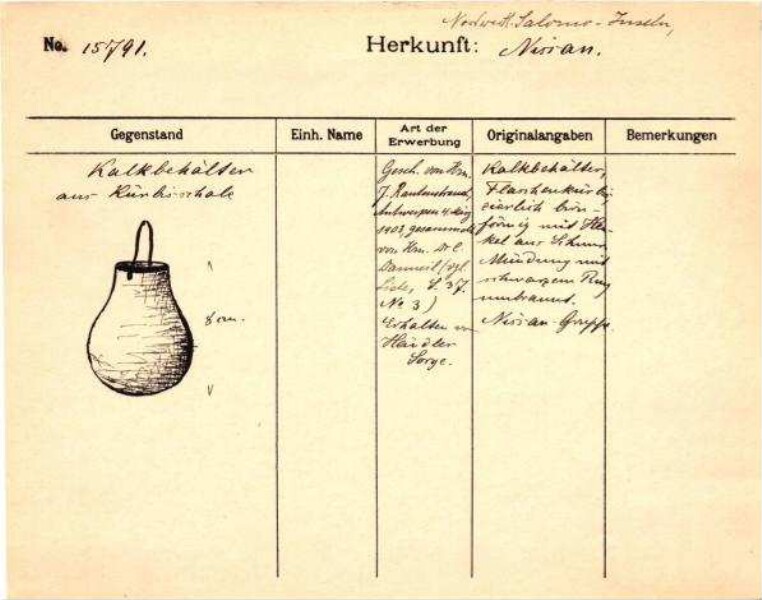 Nordwestl. Salomo-Inseln,
No. 15791.
Herkunft: Nissan.
Gegenstand
Einh. Name
Art der Erwerbung
Originalangaben
Bemerkungen
Kalkbehälter
aus Kürbisschale
8 cm.
Gesch. von Hrn.
J. Rautenstrauch,
Antwerpen 4. März
1903, gesammelt
von Hrn. Dr C.
Danneil (vgl.
Liste, S. 37.
No 3)
Erhalten von
Händler
Sorge.
Kalkbehälter,
Flaschenkürbis
zierlich birn-
förmig mit Hen-
kel aus Schnur
Mündung mit
schwarzem Ring
umbrannt.
Nissan-Gruppe.